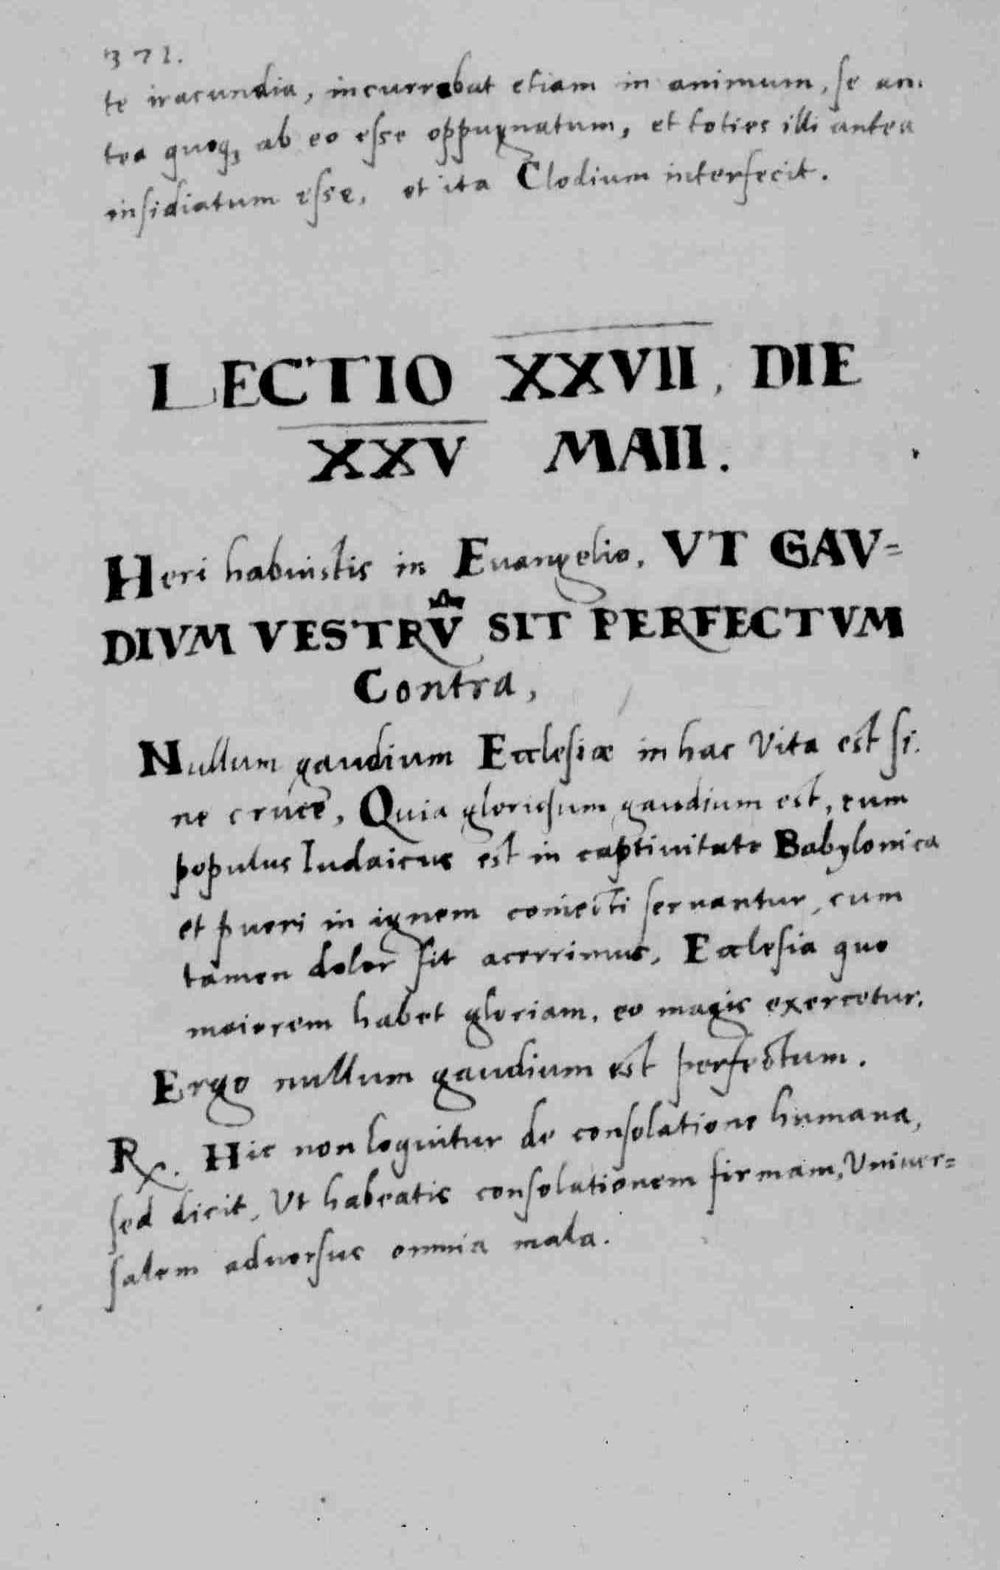 371.
te iracundia, incurrebat etiam in animum, se an.
tea quoq, ab eo esse oppugnatum, et toties illi antea
insidiatum esse, et ita Clodium interfecit.
LECTIO XXVII, DIE
XXV MAII.
Heri habuistis in Euangelio, VT GAV=
DIVM VESTRV̄ SIT PERFECTVM
Contra,
Nullum gaudium Ecclesiæ in hac Vita est si.
ne cruce, Quia gloriosum gaudium est, cum
populus Iudaicus est in captiuitate Babylonica
et pueri in ignem coniecti seruantur, cum
tamen dolor sit acerrimus, Ecclesia quo
maiorem habet gloriam, eo magis exercetur.
Ergo nullum gaudium est perfectum.
℞. Hic non loquitur de consolatione humana,
sed dicit, Ut habeatis consolationem firmam, Uniuer=
salem aduersus omnia mala.